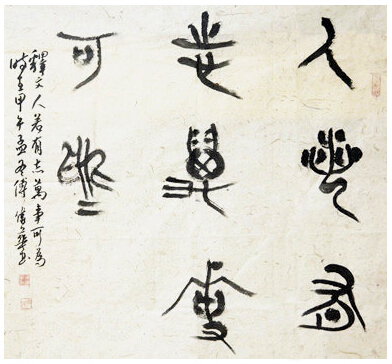 人若有
志萬事
可為
釋文人若有志萬事可為
時在甲午孟冬傅華書